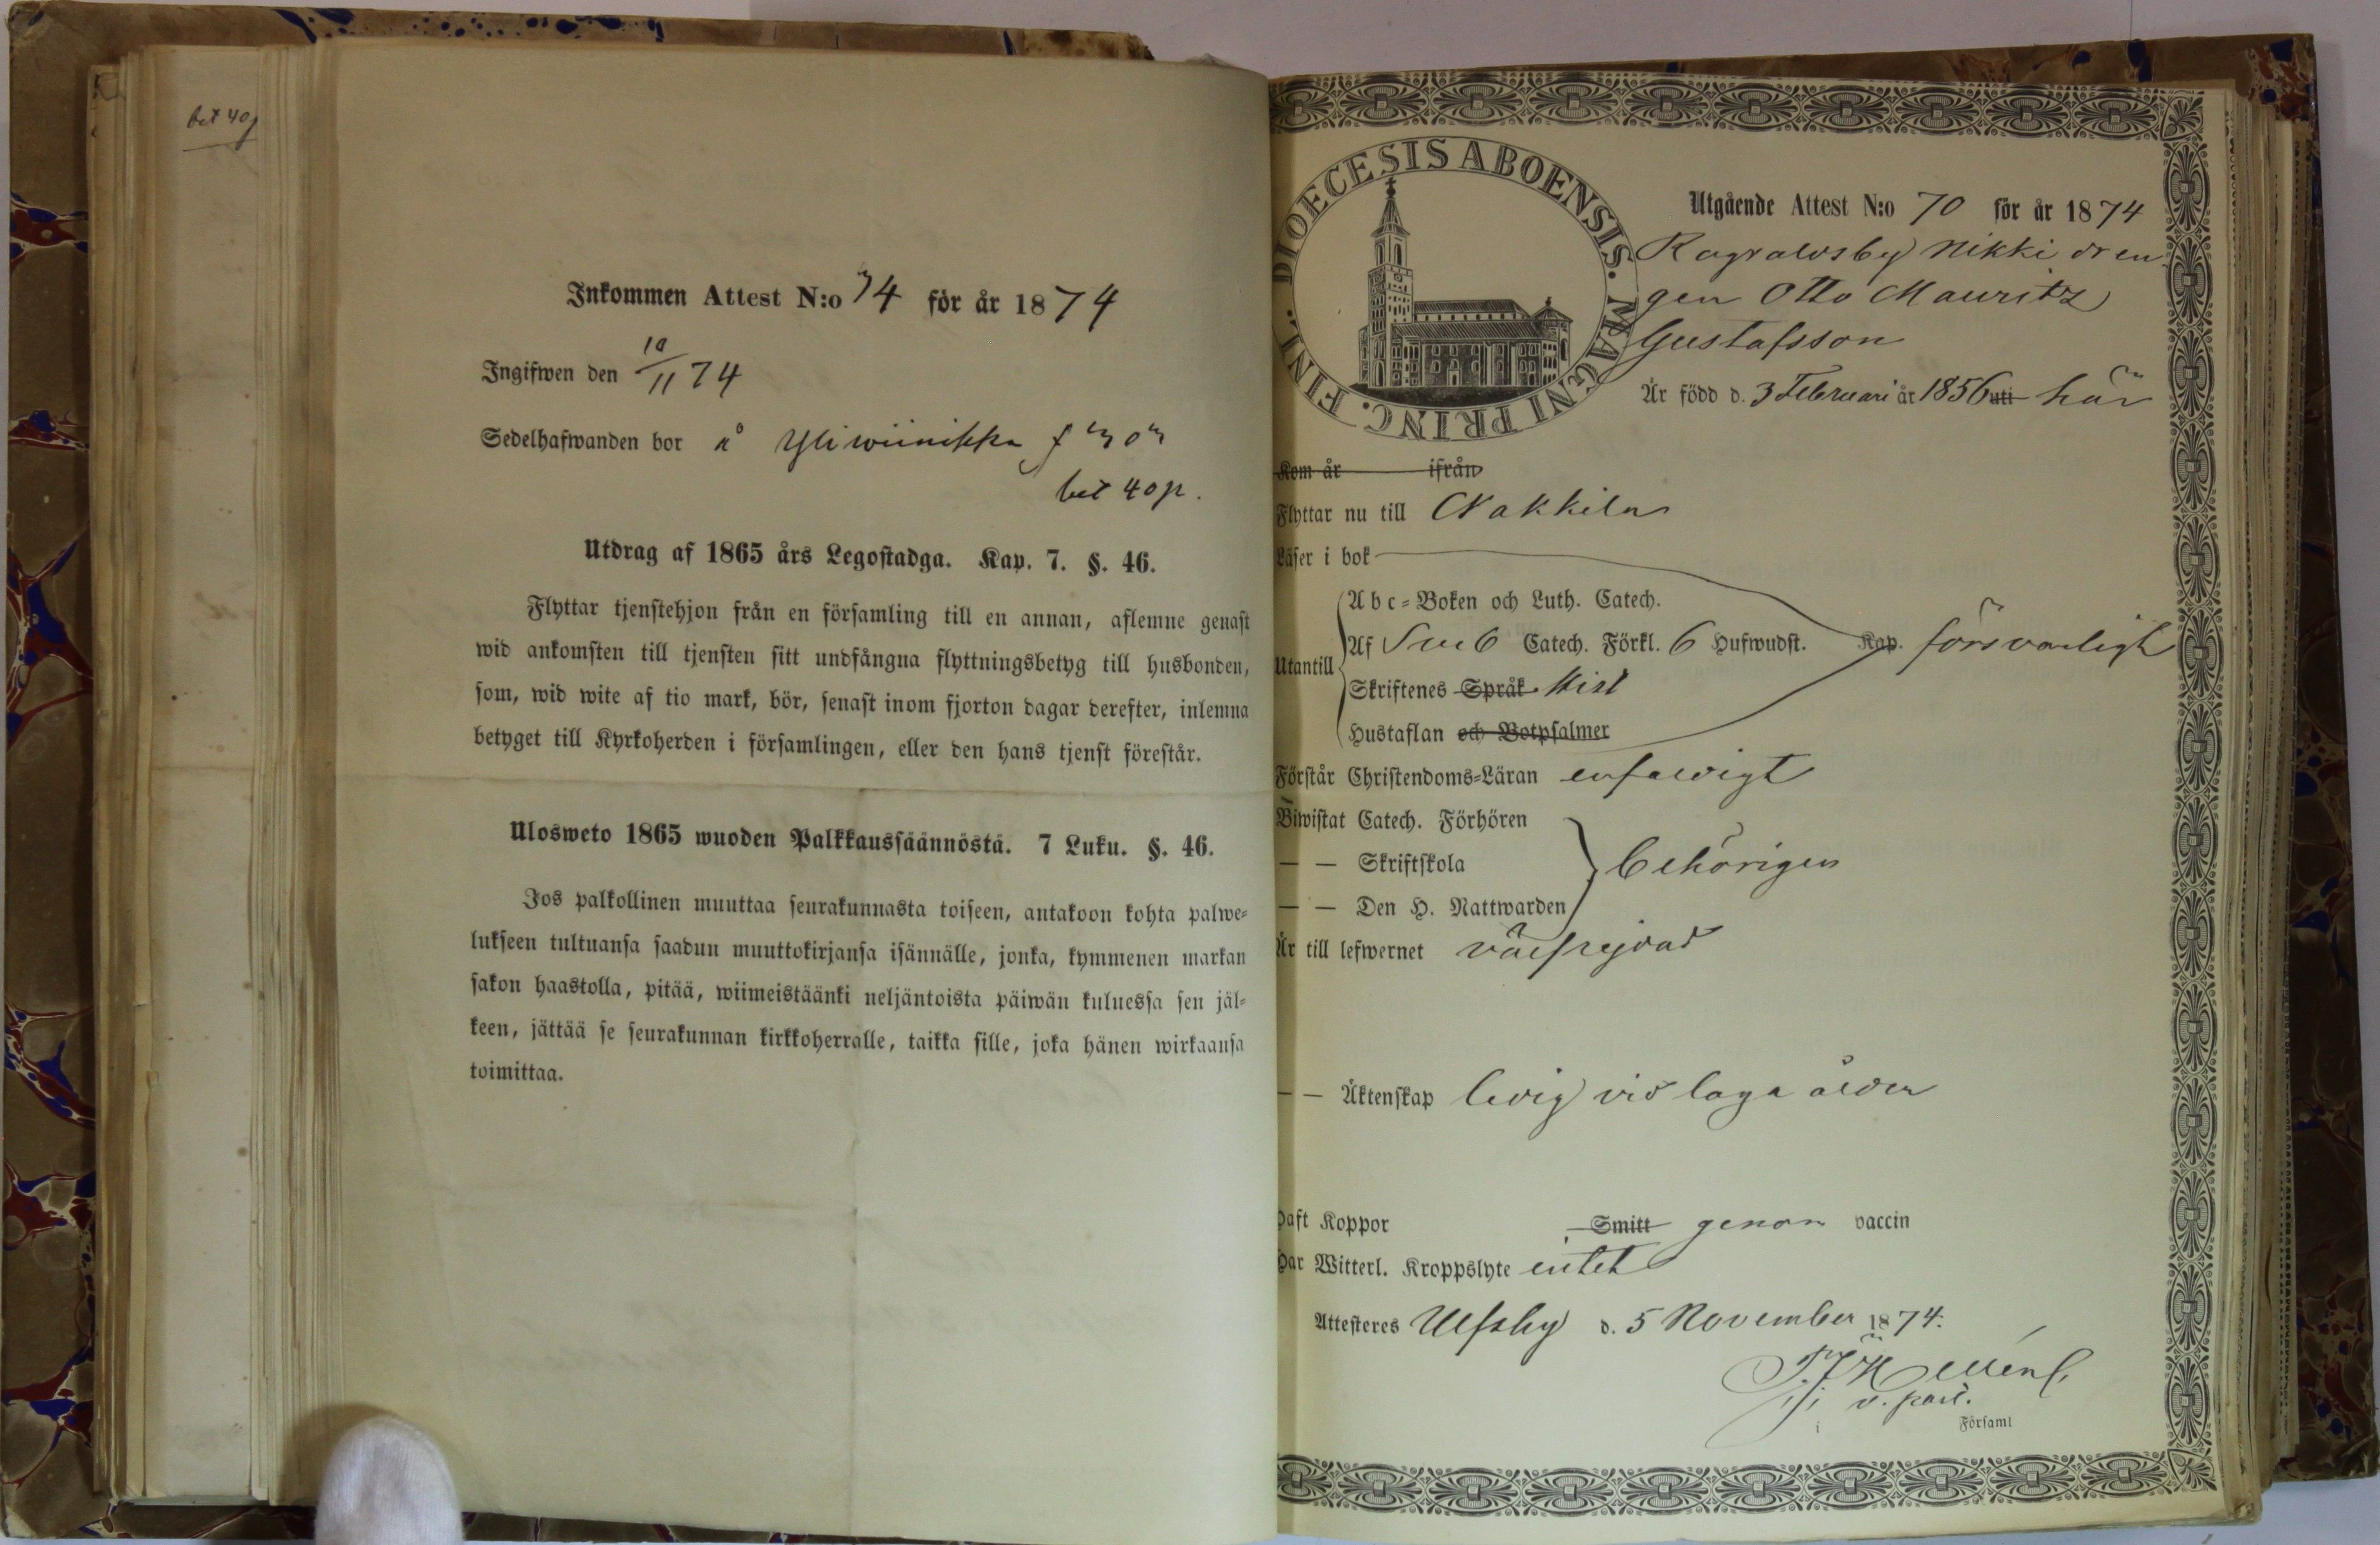 bet 40p
Inkommen Attest N:o 74 för år 1874
Ingifwen den 10/11 74
Sedelhafwanden bor å Yliwiinikka
bet 40p.
Utdrag af 1865 års Legostadga. Kap. 7. §. 46.
Flyttar tjenstehjon från en församling till en annan, aflemne genast
wid ankomsten till tjensten sitt undfångna flyttningsbetyg till husbonden,
som, wid wite af tio mark, bör, senast inom fjorton dagar derefter, inlemna
betyget till Kyrkoherden i församlingen, eller den hans tjenst förestår.
Ulosweto 1865 wuoden Palkkaussäännöstä. 7 Luku. §. 46.
Jos palkollinen muuttaa seurakunnasta toiseen, antakoon kohta palwe-
lukseen tultuansa saadun muuttokirjansa isännälle, jonka, kymmenen markan
sakon haastolla, pitää, wiimeistäänki neljäntoista päiwän kuluessa sen jäl-
keen, jättää se seurakunnan kirkkoherralle, taikka sille, joka hänen wirkaansa
toimittaa.
DIOECESIS ABOENSIS. MAGNI PRINC. FINL.
Utgående Attest N:o 70 för år 1874
Ragvaldsby Nikki dren
gen Otto Mauritz
Gustafsson
Är född d. 3 Februari år 1856 uti här
Kom år ifrån
Flyttar nu till Nakkila
Läser i bok
Abc-Boken och Luth. Catech.
Utantill Af Sve 6 Catech. Förkl. 6 Hufwudst. Kap. försvarligt
Skriftenes Språk Hist
Hustaflan och Botpsalmer
Förstår Christendoms-Läran enfaldigt
Biwistat Catech. Förhören
— — Skriftskola behörigen
— — Den H. Nattwarden
Är till lefwernet välfrejdad
— — Äktenskap ledig vid laga ålder
Haft Koppor Smitt genom vaccin
Har Witterl. Kroppslyte intet
Attesteres Ulfsby d. 5 November 1874.
v. past.
i Församl